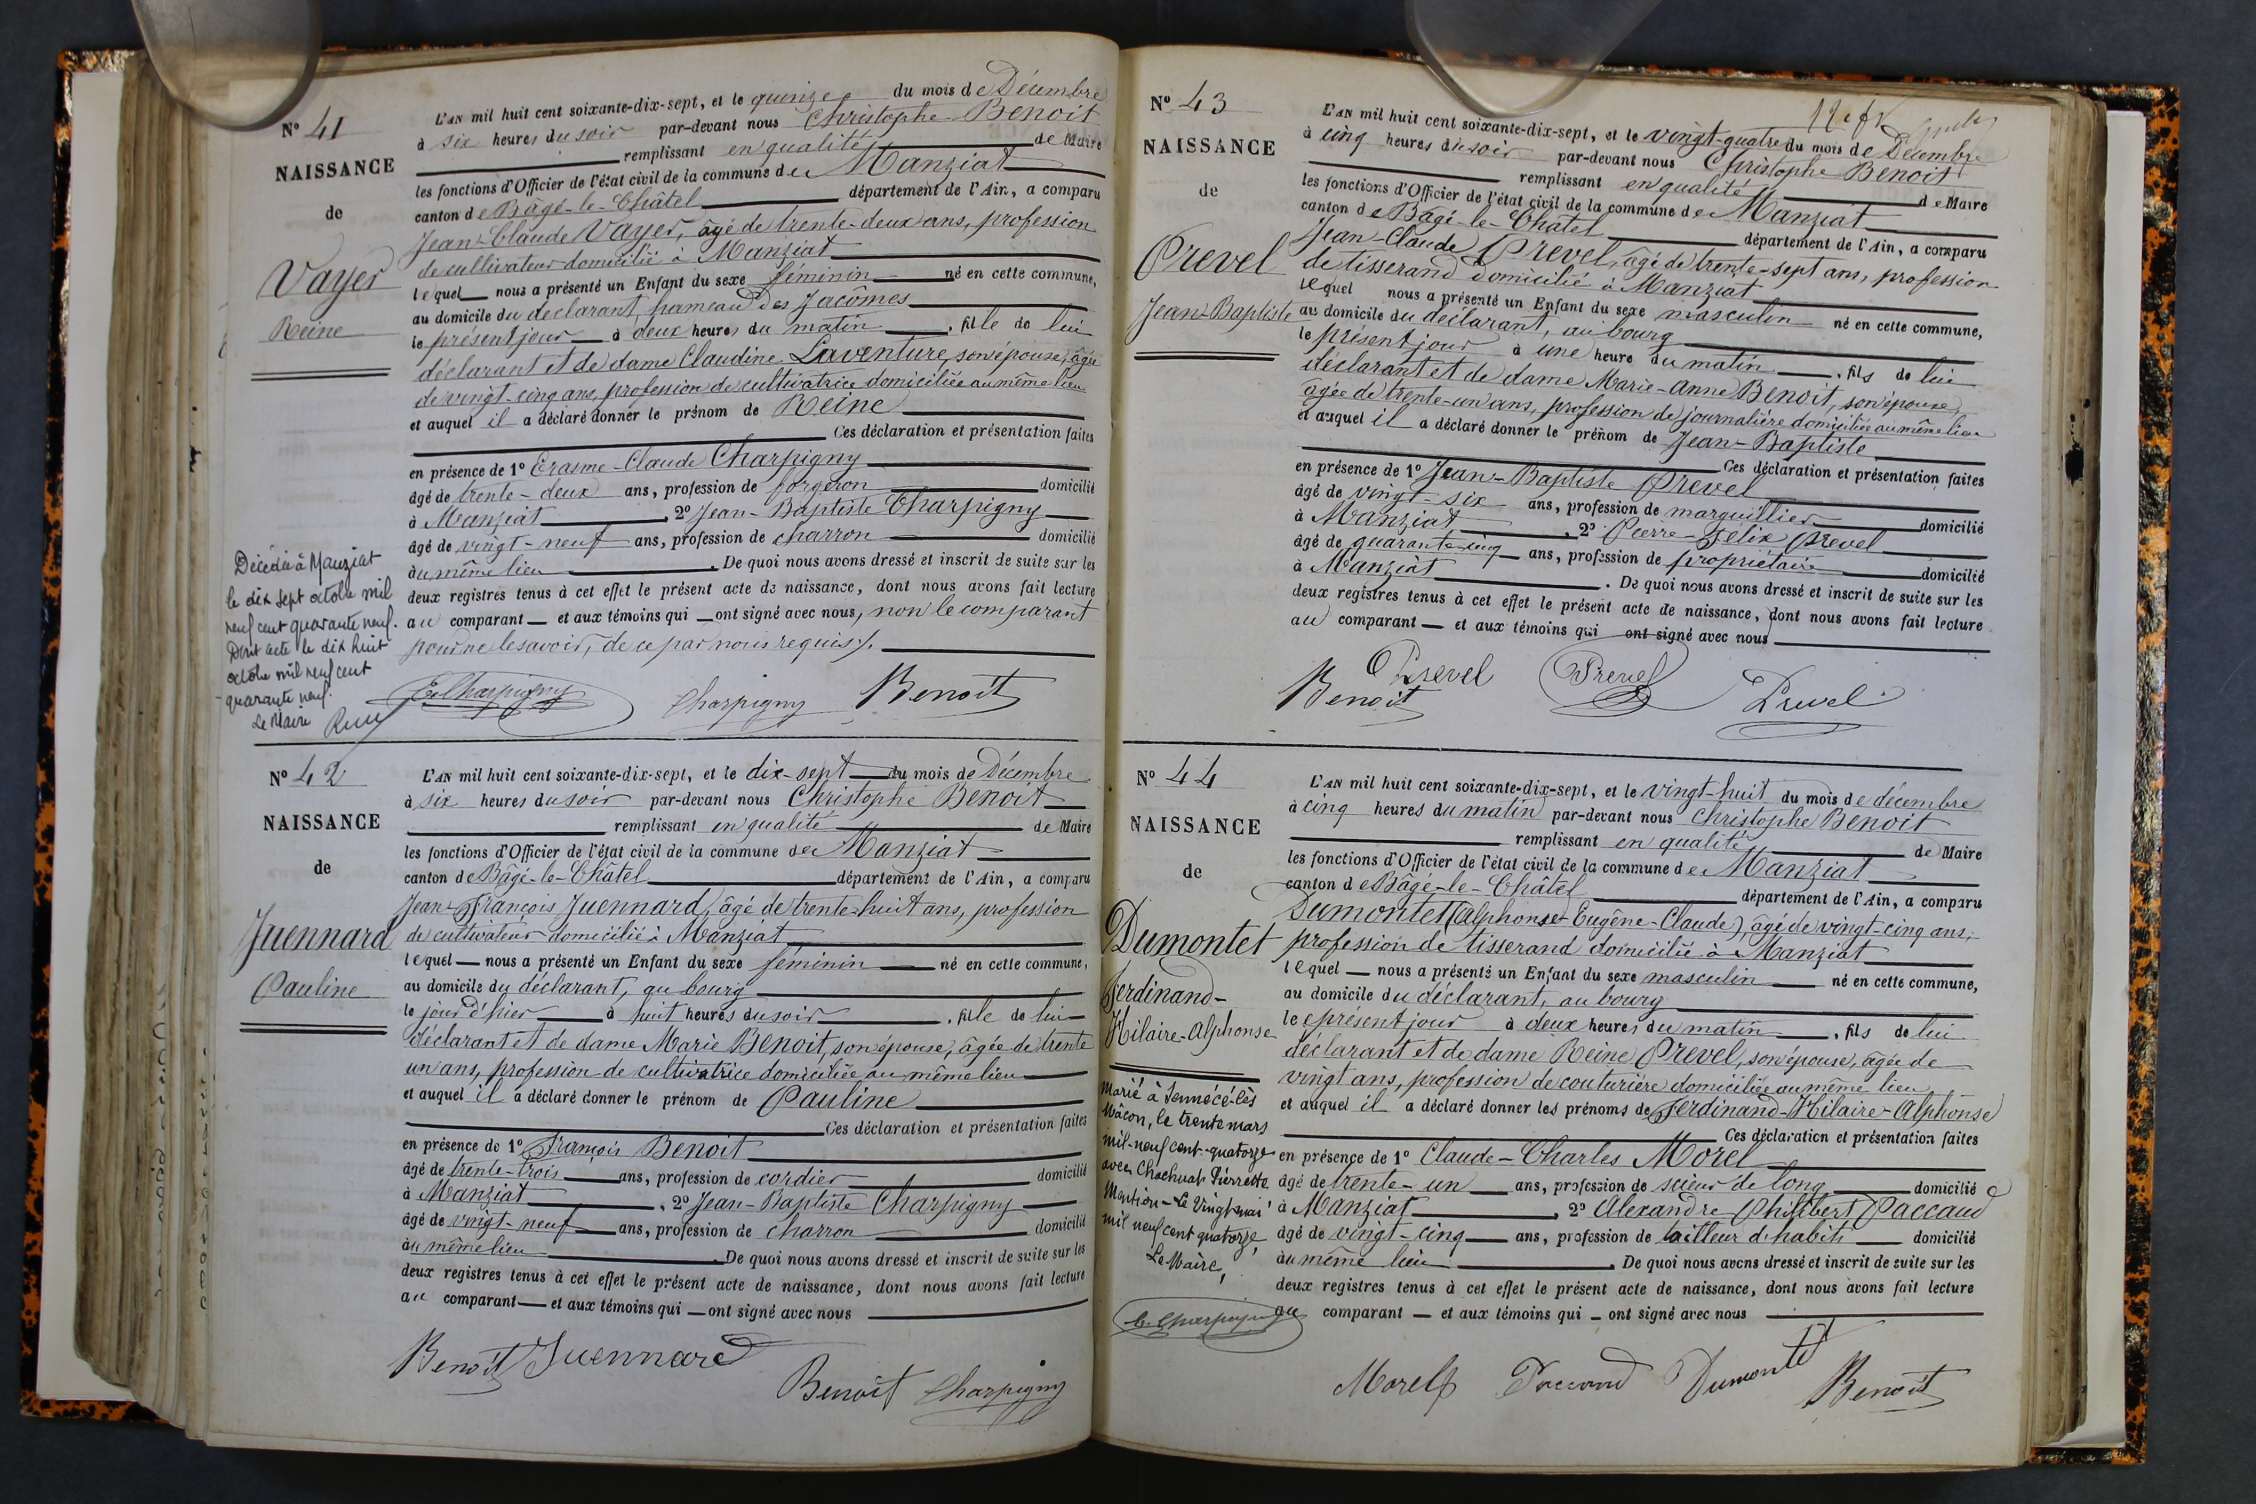 N° 41
NAISSANCE
de
Vayer
Reine
L'AN mil huit cent soixante-dix-sept, et le quinze du mois de Décembre
à six heures du soir par-devant nous Christophe Benoit
remplissant en qualité de Maire
les fonctions d'Officier de l'état civil de la commune de Manziat
canton de Bâgé-le-Châtel département de l'Ain, a comparu
Jean-Claude Vayer, âgé de trente-deux ans, profession
de cultivateur domicilié à Manziat
lequel nous a présenté un Enfant du sexe féminin né en cette commune,
au domicile du déclarant, hameau des Jacômes
le présent jour à deux heures du matin, fille de lui
déclarant et de dame Claudine Laventure, son épouse, âgée
de vingt-cinq ans, profession de cultivatrice domiciliée au même lieu
et auquel il a déclaré donner le prénom de Reine
Ces déclaration et présentation faites
en présence de 1° Erasme-Claude Charpigny
âgé de trente-deux ans, profession de forgeron domicilié
à Manziat, 2° Jean-Baptiste Charpigny
âgé de vingt-neuf ans, profession de charron domicilié
au même lieu. De quoi nous avons dressé et inscrit de suite sur les
deux registres tenus à cet effet le présent acte de naissance, dont nous avons fait lecture
au comparant et aux témoins qui ont signé avec nous, non le comparant
pour ne le savoir, de ce par nous requis ./.
E. Charpigny Charpigny Benoit
Décédée à Manziat
le dix sept octobre mil
neuf cent quarante neuf.
Dont acte le dix huit
octobre mil neuf cent
quarante neuf.
Le Maire
N° 42
NAISSANCE
de
Juennard
Pauline
L'AN mil huit cent soixante-dix-sept, et le dix-sept du mois de Décembre
à six heures du soir par-devant nous Christophe Benoit
remplissant en qualité de Maire
les fonctions d'Officier de l'état civil de la commune de Manziat
canton de Bâgé-le-Châtel département de l'Ain, a comparu
Jean-François Juennard, âgé de trente-huit ans, profession
de cultivateur domicilié à Manziat
lequel nous a présenté un Enfant du sexe féminin né en cette commune,
au domicile du déclarant, au bourg
le jour d'hier à huit heures du soir, fille de lui
déclarant et de dame Marie Benoit, son épouse, âgée de trente
un ans, profession de cultivatrice domiciliée au même lieu
et auquel il a déclaré donner le prénom de Pauline
Ces déclaration et présentation faites
en présence de 1° François Benoit
âgé de trente-trois ans, profession de cordier domicilié
à Manziat, 2° Jean-Baptiste Charpigny
âgé de vingt-neuf ans, profession de charron domicilié
au même lieu. De quoi nous avons dressé et inscrit de suite sur les
deux registres tenus à cet effet le présent acte de naissance, dont nous avons fait lecture
au comparant et aux témoins qui ont signé avec nous
Benoit Juennard
Benoit Charpigny
N° 43
NAISSANCE
de
Prevel
Jean-Baptiste
L'AN mil huit cent soixante-dix-sept, et le vingt-quatre du mois de Décembre
à cinq heures du soir par-devant nous Christophe Benoit
remplissant en qualité de Maire
les fonctions d'Officier de l'état civil de la commune de Manziat
canton de Bâgé-le-Châtel département de l'Ain, a comparu
Jean-Claude Prevel, âgé de trente-sept ans, profession
de tisserand domicilié à Manziat
lequel nous a présenté un Enfant du sexe masculin né en cette commune,
au domicile du déclarant, au bourg
le présent jour à une heure du matin, fils de lui
déclarant et de dame Marie-Anne Benoit, son épouse,
âgée de trente-un ans, profession de journalière domiciliée au même lieu
et auquel il a déclaré donner le prénom de Jean-Baptiste
Ces déclaration et présentation faites
en présence de 1° Jean-Baptiste Prevel
âgé de vingt-six ans, profession de marguillier domicilié
à Manziat, 2° Pierre-Félix Prevel
âgé de quarante-cinq ans, profession de propriétaire domicilié
à Manziat. De quoi nous avons dressé et inscrit de suite sur les
deux registres tenus à cet effet le présent acte de naissance, dont nous avons fait lecture
au comparant et aux témoins qui ont signé avec nous
Prevel Prevel Prevel
Benoit
N° 44
NAISSANCE
de
Dumontet
Ferdinand-
Hilaire-Alphonse
L'AN mil huit cent soixante-dix-sept, et le vingt-huit du mois de décembre
à cinq heures du matin par-devant nous Christophe Benoit
remplissant en qualité de Maire
les fonctions d'Officier de l'état civil de la commune de Manziat
canton de Bâgé-le-Châtel département de l'Ain, a comparu
Dumontet (Alphonse-Eugène-Claude), âgé de vingt-cinq ans,
profession de tisserand domicilié à Manziat
lequel nous a présenté un Enfant du sexe masculin né en cette commune,
au domicile du déclarant, au bourg
le présent jour à deux heures du matin, fils de lui
déclarant et de dame Reine Prevel, son épouse, âgée de
vingt ans, profession de couturière domiciliée au même lieu
et auquel il a déclaré donner les prénoms de Ferdinand-Hilaire-Alphonse
Ces déclaration et présentation faites
en présence de 1° Claude-Charles Morel
âgé de trente-un ans, profession de scieur de long domicilié
à Manziat, 2° Alexandre Philibert Paccaud
âgé de vingt-cinq ans, profession de tailleur d'habits domicilié
au même lieu. De quoi nous avons dressé et inscrit de suite sur les
deux registres tenus à cet effet le présent acte de naissance, dont nous avons fait lecture
au comparant et aux témoins qui ont signé avec nous
Morel Paccaud Dumontet Benoit
Marié à Sennécé-lès
Mâcon, le trente mars
mil-neuf cent-quatorze
avec Chachuat Pierrette
Mention - Le Vingt mai
mil neuf cent quatorze,
Le Maire,
C. Charpigny